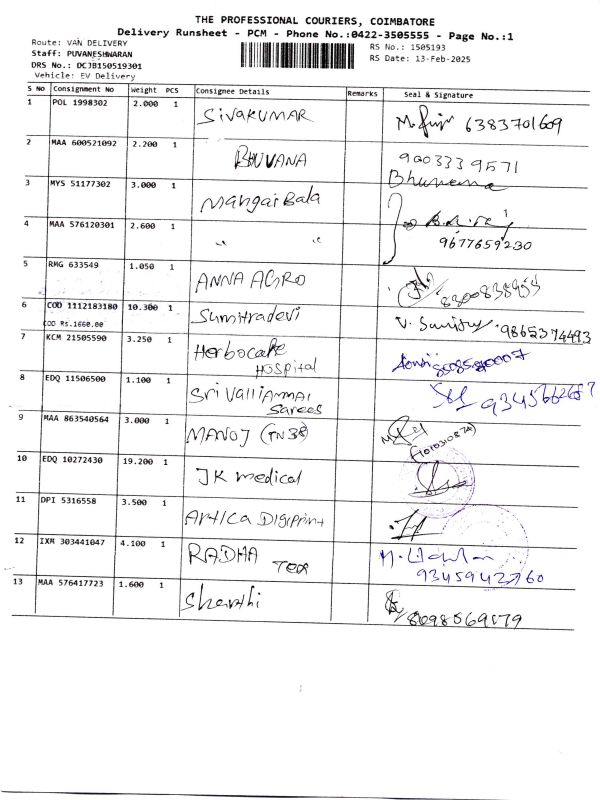 THE PROFESSIONAL COURIERS, COIMBATORE
Delivery Runsheet - PCM - Phone No.:0422-3505555 - Page No.:1
Route: VAN DELIVERY
RS No.: 1505193
Staff: PUVANESHWARAN
RS Date: 13-Feb-2025
DRS No.: DCJB150519301
Vehicle: EV Delivery
S No Consignment No Weight PCS Consignee Details Remarks Seal & Signature
1 POL 1998302 2.000 1 SIVAKUMAR 6383701609
2 MAA 600521092 2.200 1 BHUVANA 9003339571
Bhuvana
3 MYS 51177302 3.000 1 Mangai Bala
4 MAA 576120301 2.600 1 " " 9677659230
5 RMG 633549 1.050 1 ANNA AGRO
6 COD 1112183180 10.300 1 Sumitradevi 9865374493
COD Rs.1660.00
7 KCM 21505590 3.250 1 Herbocare
HOSPital
8 EDQ 11506500 1.100 1 Sri Valliammai
Sarees
9345662687
9 MAA 863540564 3.000 1 MANOJ (TN38)
10 EDQ 10272430 19.200 1 JK medical
11 DPI 5316558 3.500 1 Artica Digiprint
12 IXM 303441047 4.100 1 RADHA Tex
13 MAA 576417723 1.600 1 Sharthi